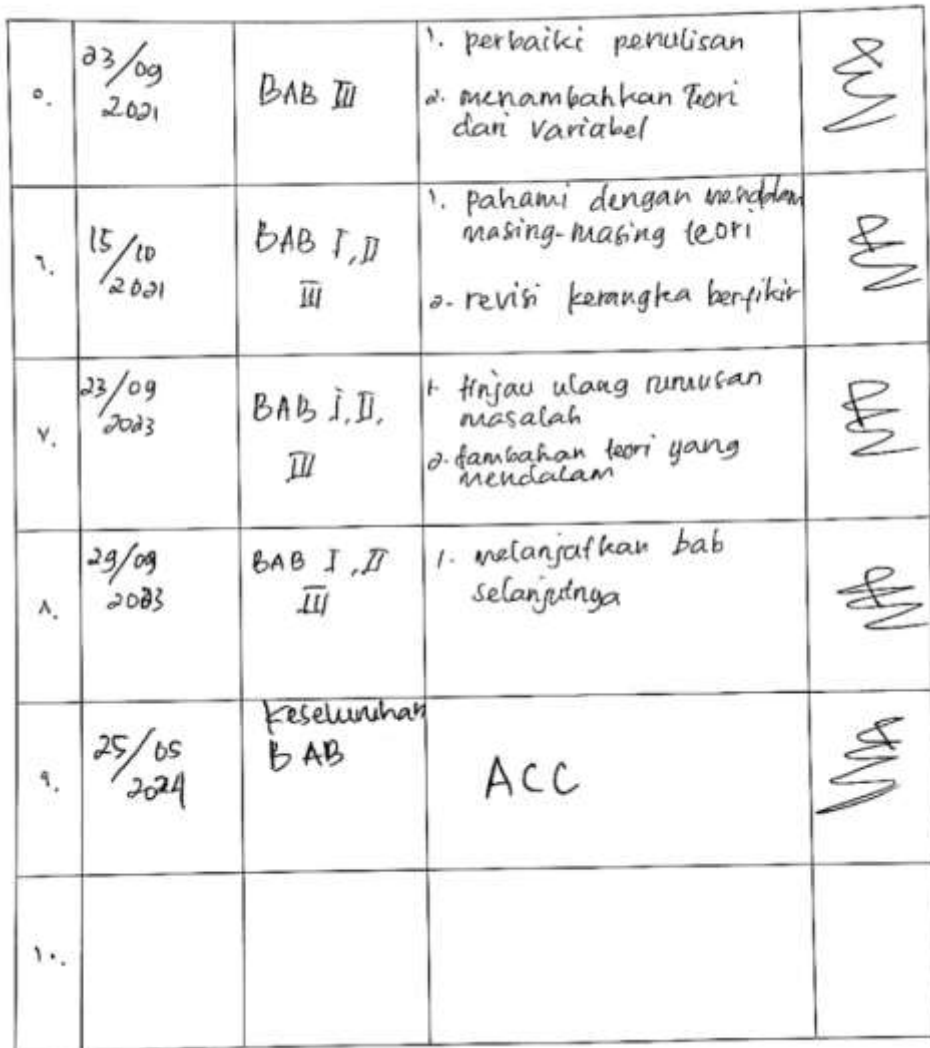 ٥.
23/09
2021
BAB III
1. perbaiki penulisan
2. menambahkan teori
dari variabel
٦.
15/10
2021
BAB I, II
III
1. pahami dengan mendalam
masing-masing teori
2. revisi kerangka berfikir
٧.
23/09
2023
BAB I, II,
III
1. tinjau ulang rumusan
masalah
2. tambahan teori yang
mendalam
٨.
29/09
2023
BAB I, II
III
1. melanjutkan bab
selanjutnya
٩.
25/05
2024
Keseluruhan
BAB
ACC
١٠.